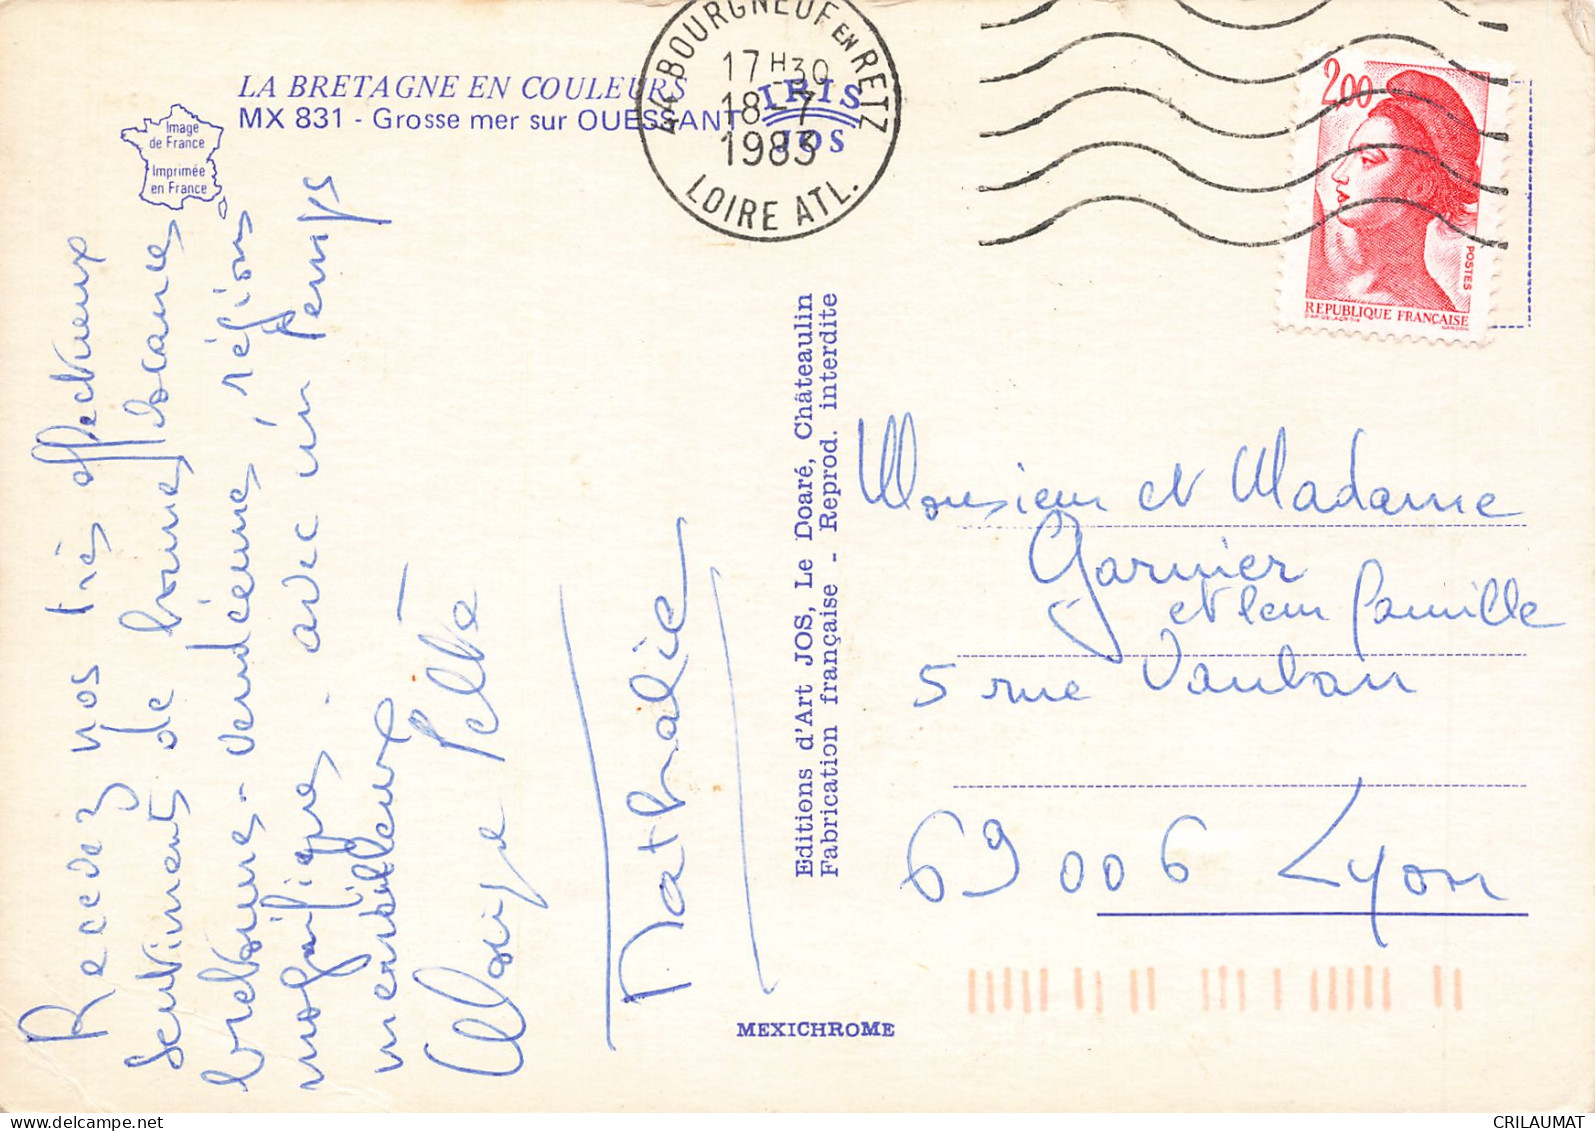 LA BRETAGNE EN COULEURS
MX 831 - Grosse mer sur OUESSANT
IRIS
JOS
Image
de France
Imprimée
en France
44 BOURGNEUF EN RETZ
17 H 30
18 - 7
1983
LOIRE ATL.
2,00
POSTES
REPUBLIQUE FRANÇAISE
D'AP. DELACROIX GANDON
Recevez nos très affectueux
sentiments de bonnes vacances
bretonnes - vendéennes, régions
magnifiques. avec un temps
merveilleux
Nathalie
Editions d'Art JOS, Le Doaré, Châteaulin
Fabrication française - Reprod. interdite
MEXICHROME
Monsieur et Madame
Garnier
et leur famille
5 rue Vauban
69006 Lyon
CRILAUMAT